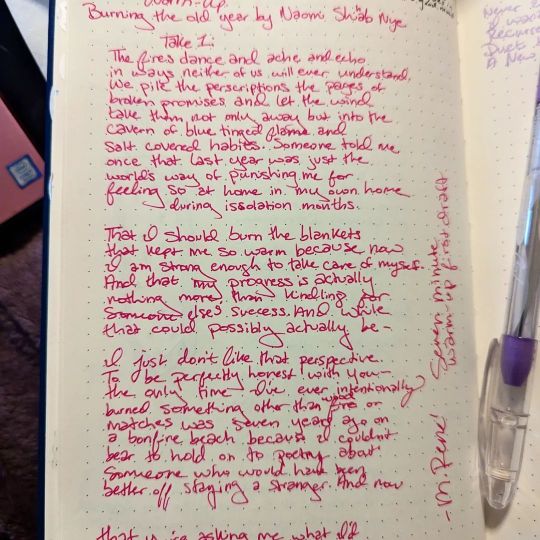 Warm-up
Burning the old year by Naomi Shihab Nye
Take 1:
The fires dance and ache and echo
in ways neither of us will ever understand.
We pile the perscriptions the pages of
broken promises, and let the wind
take them not only away but into the
cavern of blue tinged flame and
salt covered habits. Someone told me
once that last year was just the
world's way of punishing me for
feeling so at home in my own home
during issolation months.
That I should burn the blankets
that kept me so warm because now
I am strong enough to take care of myself.
And that my progress is actually
nothing more than kindling for
Someone else's success. And while
that could possibly actually be -
I just don't like that perspective.
To be perfectly honest with you -
the only time I've ever intentionally
burned something other than wood fire or
matches was seven years ago on
a bonfire beach because I couldn't
bear to hold on to poetry about
Someone who would have been
better off staying a stranger. And now
is asking me what I'd
Seven minute
warm-up first draft
Never
A New
intel